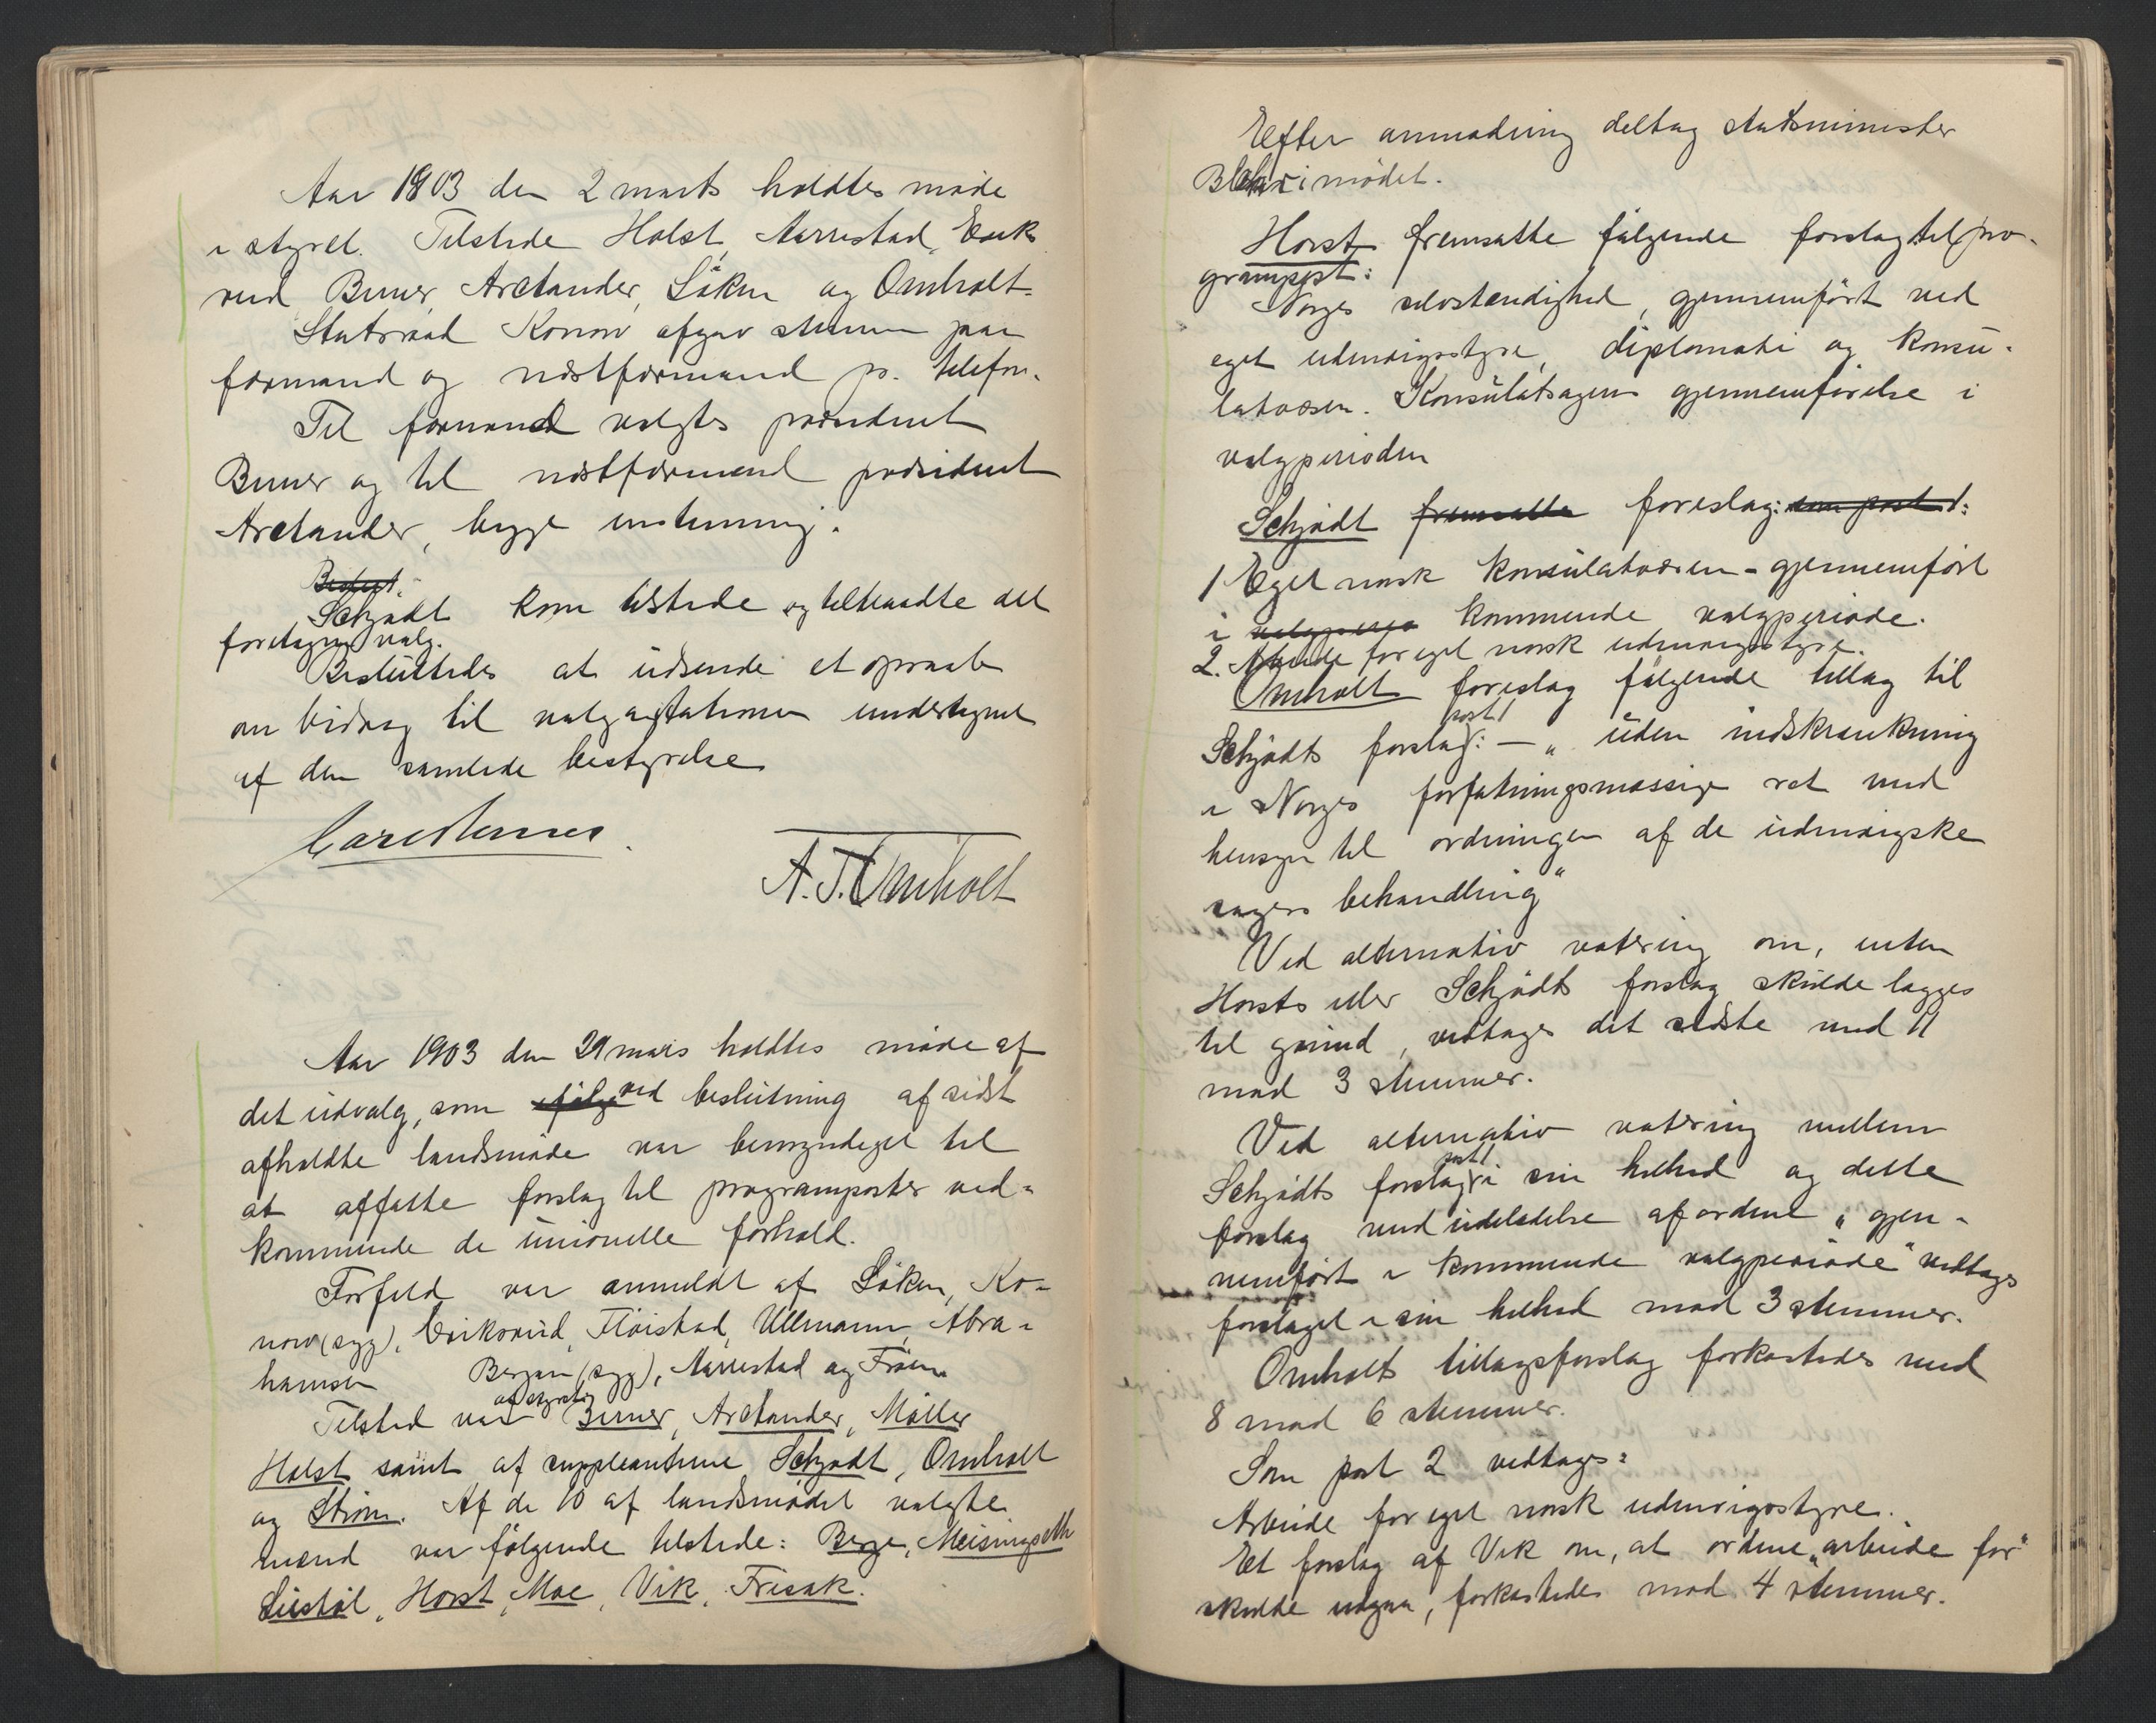 Aar 1903 den 2 marts holdtes møde
i styret. Tilstede Holst, Aarrestad, Eriks-
rud, Berner, Arctander, Løken og Omholt.
Statsraad Konow afgav stemme paa
formand og næstformand pr. telefon.
Til formand valgtes præsident
Berner og til næstformand præsident
Arctander, begge enstemmig.
Schjødt kom tilstede og tiltraadte det
foretagne valg.
Besluttedes at udsende et opraab
om bidrag til valgagitationen undertegnet
af den samlede bestyrelse
Carl Berner.
A. T. Omholt
Aar 1903 den 29 mars holdtes møde af
det udvalg, som ifølge ved beslutning af sidst
afholdte landsmøde var bemyndiget til
at affatte forslag til programposter ved-
kommende de unionelle forhold.
Forfald var anmeldt af Løken, Ko-
now (syg), Eriksrud, Fløistad, Ullmann, Abra-
hamsen Bergan (syg), Aarrestad og Frøen
Tilsted var af styret Berner, Arctander, Møller
Holst samt af suppleanterne Schjødt, Omholt
og Strøm. Af de 10 af landsmødet valgte
mænd var følgende tilstede: Berge, Meisingseth
Liestøl, Horst, Moe, Vik, Frisak.
Efter anmodning deltog statsminister
Blehr i mødet.
Horst fremsatte følgende forslag til pro-
grampost:
Norges selvstændighed, gjennemført ved
eget udenrigsstyre, diplomati og konsu-
latvæsen. Konsulatsagens gjennemførelse i
valgperioden
Schjødt fremsatte foreslog: som post 1:
1 Eget norsk konsulatvæsen - gjennemført
i valgperio kommende valgperiode.
2. Arbeide for eget norsk udenrigsstyre.
Omholt foreslog følgende tillæg til
Schjødts forslag post 1: — „uden indskrænkning
i Norges forfatningsmæssige ret med
hensyn til ordningen af de udenrigske
sagers behandling"
Ved alternativ votering om, enten
Horsts eller Schjødts forslag skulde lægges
til grund, vedtages det sidste med 11
mod 3 stemmer.
Ved alternativ votering mellem
Schjødts forslag post 1 i sin helhed og dette
forslag med udeladelse af ordene „gjen-
nemført i kommende valgperiode" vedtages
forslaget i sin helhed mod 3 stemmer.
Omholts tillægsforslag forkastedes med
8 mod 6 stemmer.
Som post 2 vedtages:
Arbeide for eget norsk udenrigsstyre.
Et forslag af Vik om, at ordene „arbeide for"
skulde udgaa, forkastedes mod 4 stemmer.